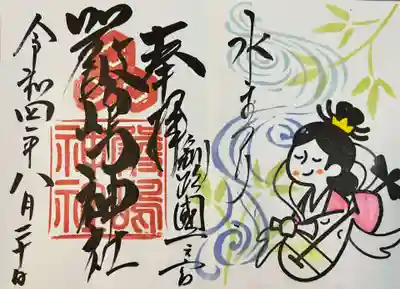 水まつり
奉拝
釧路國一之宮
嚴嶋神社
令和四年八月二十日
嚴島
神社